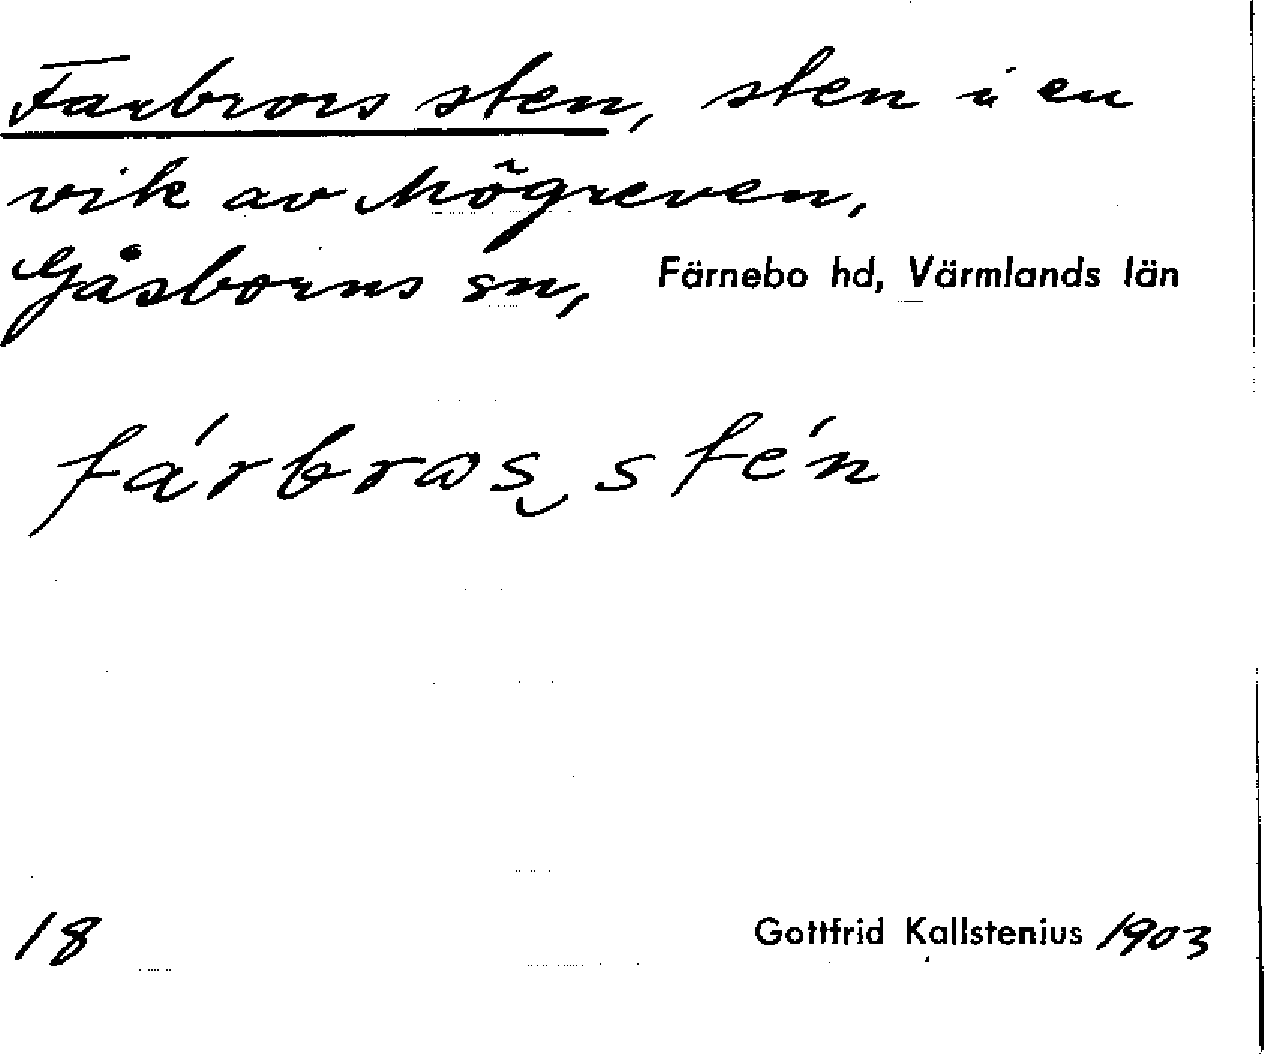 Farbrors sten, sten i en
vik av Mögreven,
Gåsborns sn, Färnebo hd, Värmlands län
fárbros stén
18 Gottfrid Kallstenius 1903